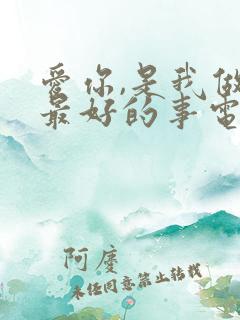 爱你,是我做
最好的事电
阿庆
未经同意禁止转载